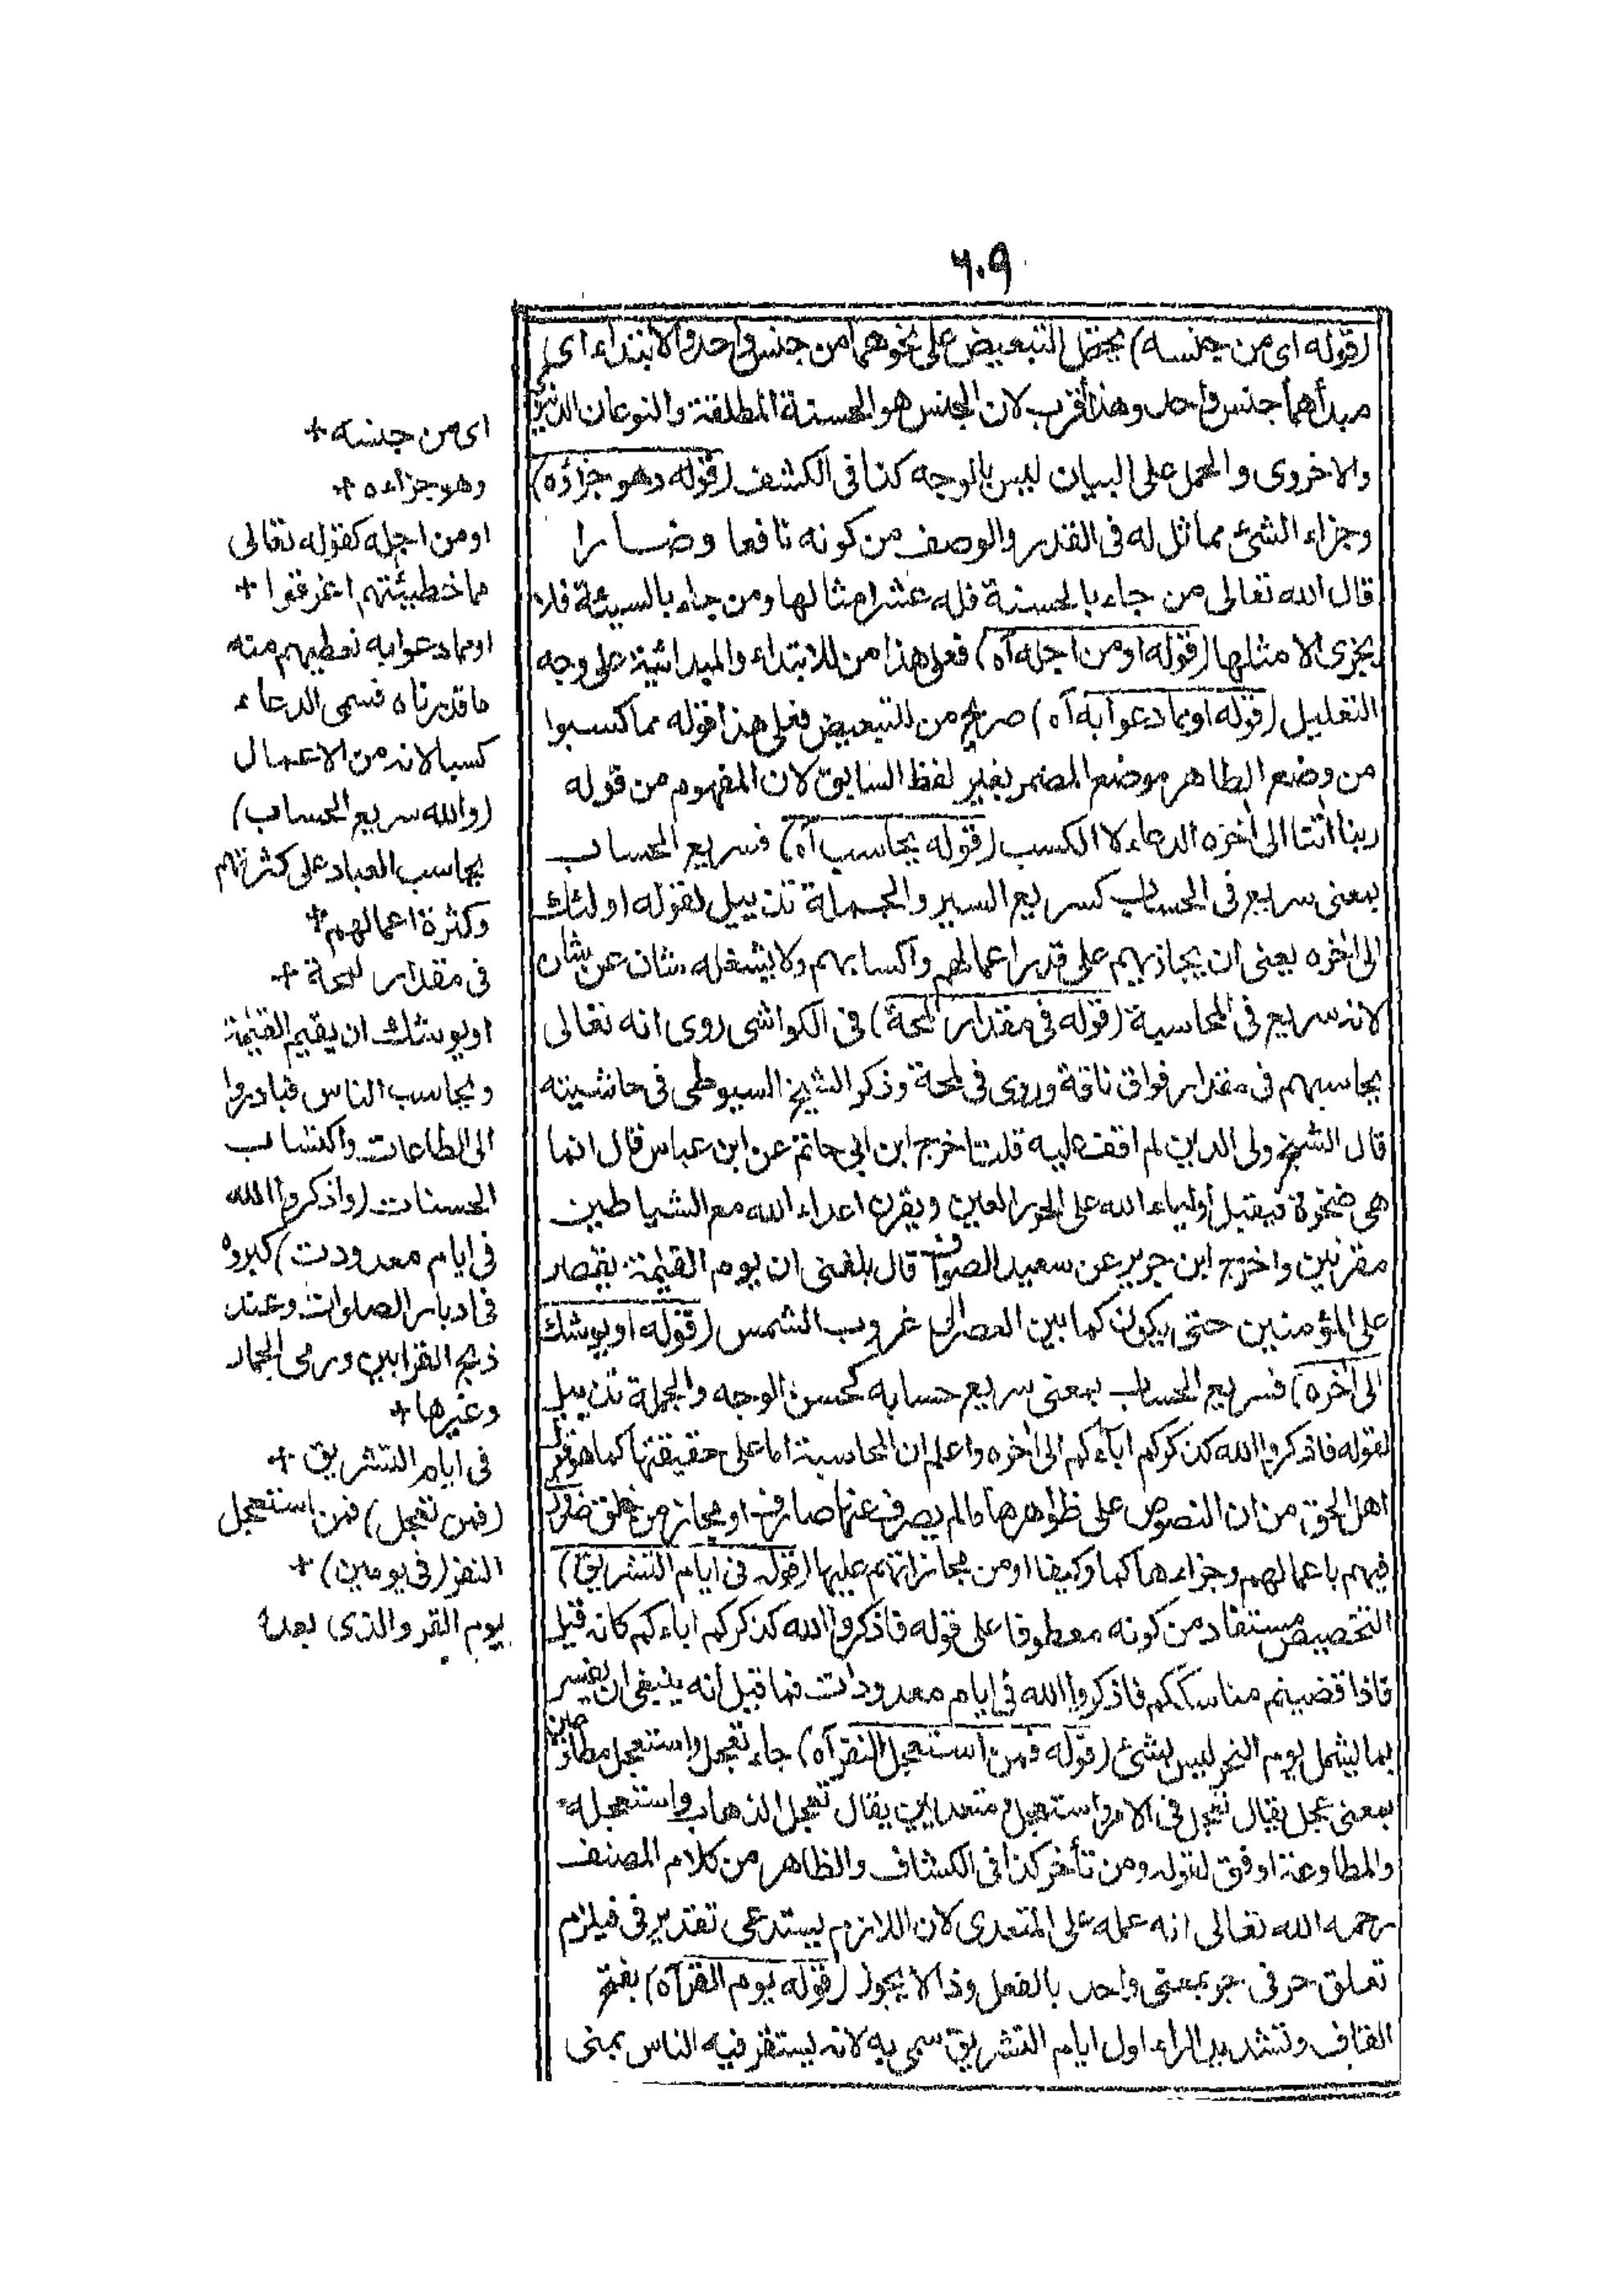 ٦٠٩
(قوله اى من جنسه) يحتمل التبعيض على نحوهما من جنس واحد والابتداء اى
مبدأهما جنس واحد وهذا أقرب لان الجنس هو الحسنة المطلقة والنوعان الدنيوى
والاخروى والحمل على البيان ليس بالوجه كذا فى الكشف (قوله وهو جزاؤه)
وجزاء الشئ مماثل له فى القدر والوصف من كونه نافعا وضارا
قال الله تعالى من جاء بالحسنة فله عشر امثالها ومن جاء بالسيئة فلا
يجزى الا مثلها (قوله او من اجله آه) فعلى هذا من للابتداء والمبدائية على وجه
التعليل (قوله او بما دعوا به آه) صريح من للتبعيض فعلى هذا قوله مما كسبوا
من وضع الظاهر موضع المضمر بغير لفظ السابق لان المفهوم من قوله
ربنا اٰتنا الى اٰخره الدعاء لا الكسب (قوله يحاسب آه) فسريع الحساب
بمعنى سريع فى الحساب كسريع السير والجملة تذييل لقوله اولئك
الى اٰخره يعنى ان يجازيهم على قدر اعمالهم واكسابهم ولا يشغله شان عن شان
لانه سريع فى المحاسبة (قوله فى مقدار لمحة) فى الكواشى روى انه تعالى
يحاسبهم فى مقدار فواق ناقة وروى فى لمحة وذكر الشيخ السيوطى فى حاشيته
قال الشيخ ولى الدين لم اقف عليه قلت اخرج ابن ابى حاتم عن ابن عباس قال انما
هى ضحوة فيقيل اولياء الله على الحور العين ويقرن اعداء الله مع الشياطين
مقرنين واخرج ابن جرير عن سعيد الصواف قال بلغنى ان يوم القيٰمة يقصر
على المؤمنين حتى يكون كما بين العصر الى غروب الشمس (قوله او يوشك
الى اٰخره) فسريع الحساب بمعنى سريع حسابه كحسن الوجه والجملة تذييل
لقوله فاذكروا الله كذكركم اٰباءكم الى اٰخره واعلم ان المحاسبة اما على حقيقتها كما هو قول
اهل الحق من ان النصوص على ظواهرها مالم يصرف عنها صارف او مجاز من خلق ضرورى
فيهم باعمالهم وجزاءها كما وكيفا او من مجازاتهم عليها (قوله فى ايام التشريق)
التخصيص مستفاد من كونه معطوفا على قوله فاذكروا الله كذكركم اباءكم كانه قيل
فاذا قضيتم مناسككم فاذكروا الله فى ايام معدودات فما قيل انه ينبغى ان يفسر
بما يشمل يوم النحر ليس بشئ (قوله فمن استعجل النفر آه) جاء تعجل واستعجل مطاوعين
بمعنى عجل يقال تعجل فى الامر واستعجل ومتعديين يقال تعجل الذهاب واستعجله
والمطاوعة اوفق لقوله ومن تأخر كذا فى الكشاف والظاهر من كلام المصنف
رحمه الله تعالى انه حمله على المتعدى لان اللازم يستدعى تقدير فى فيلزم
تعلق حرفى جر بمعنى واحد بالفعل وذا لا يجوز (قوله يوم القرآه) بفتح
القاف وتشديد الراء اول ايام التشريق سمى به لانه يستقر فيه الناس بمنى
اى من جنسه +
وهو جزاءه +
او من اجله كقوله تعالى
مما خطيئتهم اغرقوا +
او مما دعوا به نعطيهم منه
ما قدرناه فسمى الدعاء
كسبا لانه من الاعمال
(والله سريع الحساب)
يحاسب العباد على كثرتهم
وكثرة اعمالهم +
فى مقدار لمحة +
او يوشك ان يقيم القيٰمة
ويحاسب الناس فبادروا
الى الطاعات واكتساب
الحسنات (واذكروا الله
فى ايام معدودت) كبروه
فى ادبار الصلوات وعند
ذبح القرابين ورمى الجمار
وغيرها +
فى ايام التشريق +
(فمن تعجل) فمن استعجل
النفر (فى يومين) +
يوم القر والذى بعدهٗ